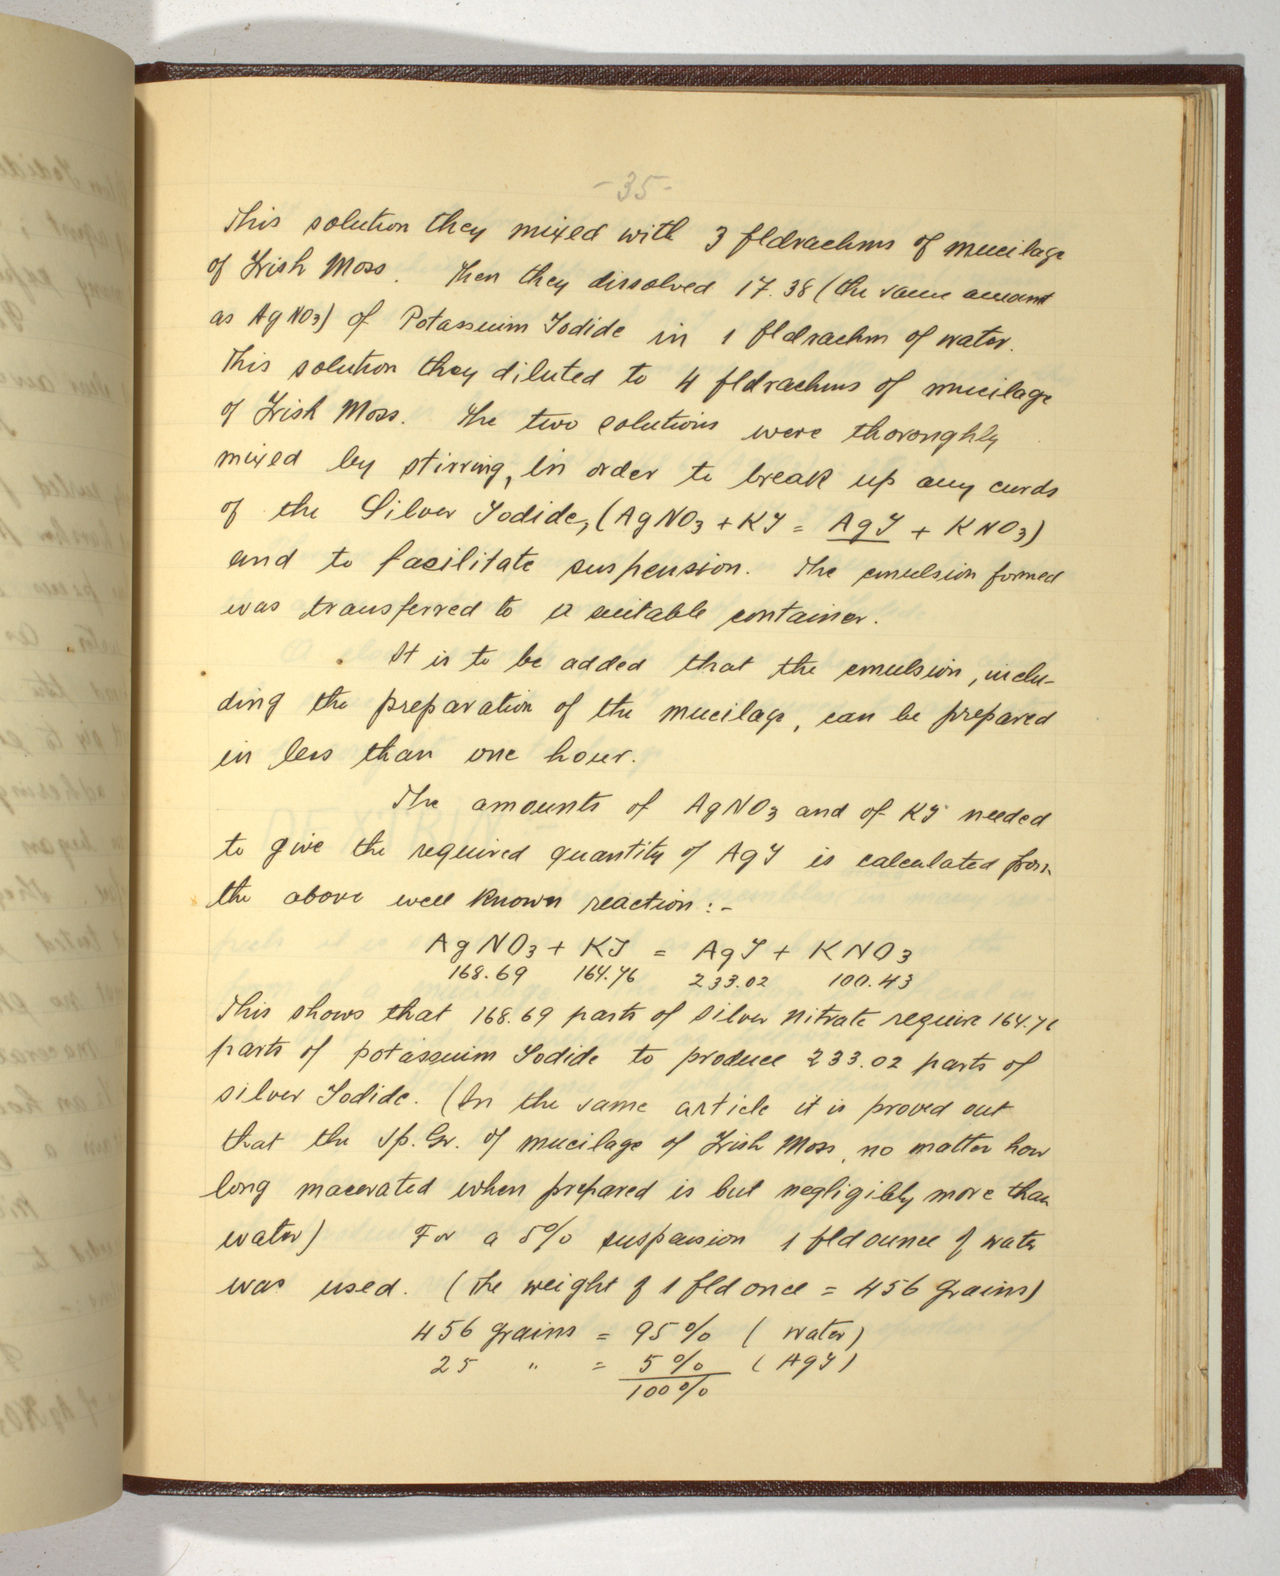 -35-
This solution they mixed with 3 fldrachms of mucilage
of Irish Moss. Then they dissolved 17.38 (the same amount
as AgNO3) of Potassium Iodide in 1 fldrachm of water.
This solution they diluted to 4 fldrachms of mucilage
of Irish Moss. The two solutions were thoroughly
mixed by stirring, in order to break up any curds
of the Silver Iodide, (AgNO3 + KI = AgI + KNO3)
and to facilitate suspension. The emulsion formed
was transferred to a suitable container.
It is to be added that the emulsion, inclu-
ding the preparation of the mucilage, can be prepared
in less than one hour.
The amounts of AgNO3 and of KI needed
to give the required quantity of AgI is calculated from
the above well known reaction :-
AgNO3 + KI = AgI + KNO3
168.69 164.76 233.02 100.43
This shows that 168.69 parts of silver nitrate require 164.76
parts of potassium Iodide to produce 233.02 parts of
silver Iodide. (In the same article it is proved out
that the Sp. Gr. of mucilage of Irish Moss, no matter how
long macerated when prepared is but negligibly more than
water) For a 5% suspension 1 fld ounce of water
was used. (The weight of 1 fld once = 456 grains)
456 grains = 95% (water)
25 " = 5% (AgI)
100%